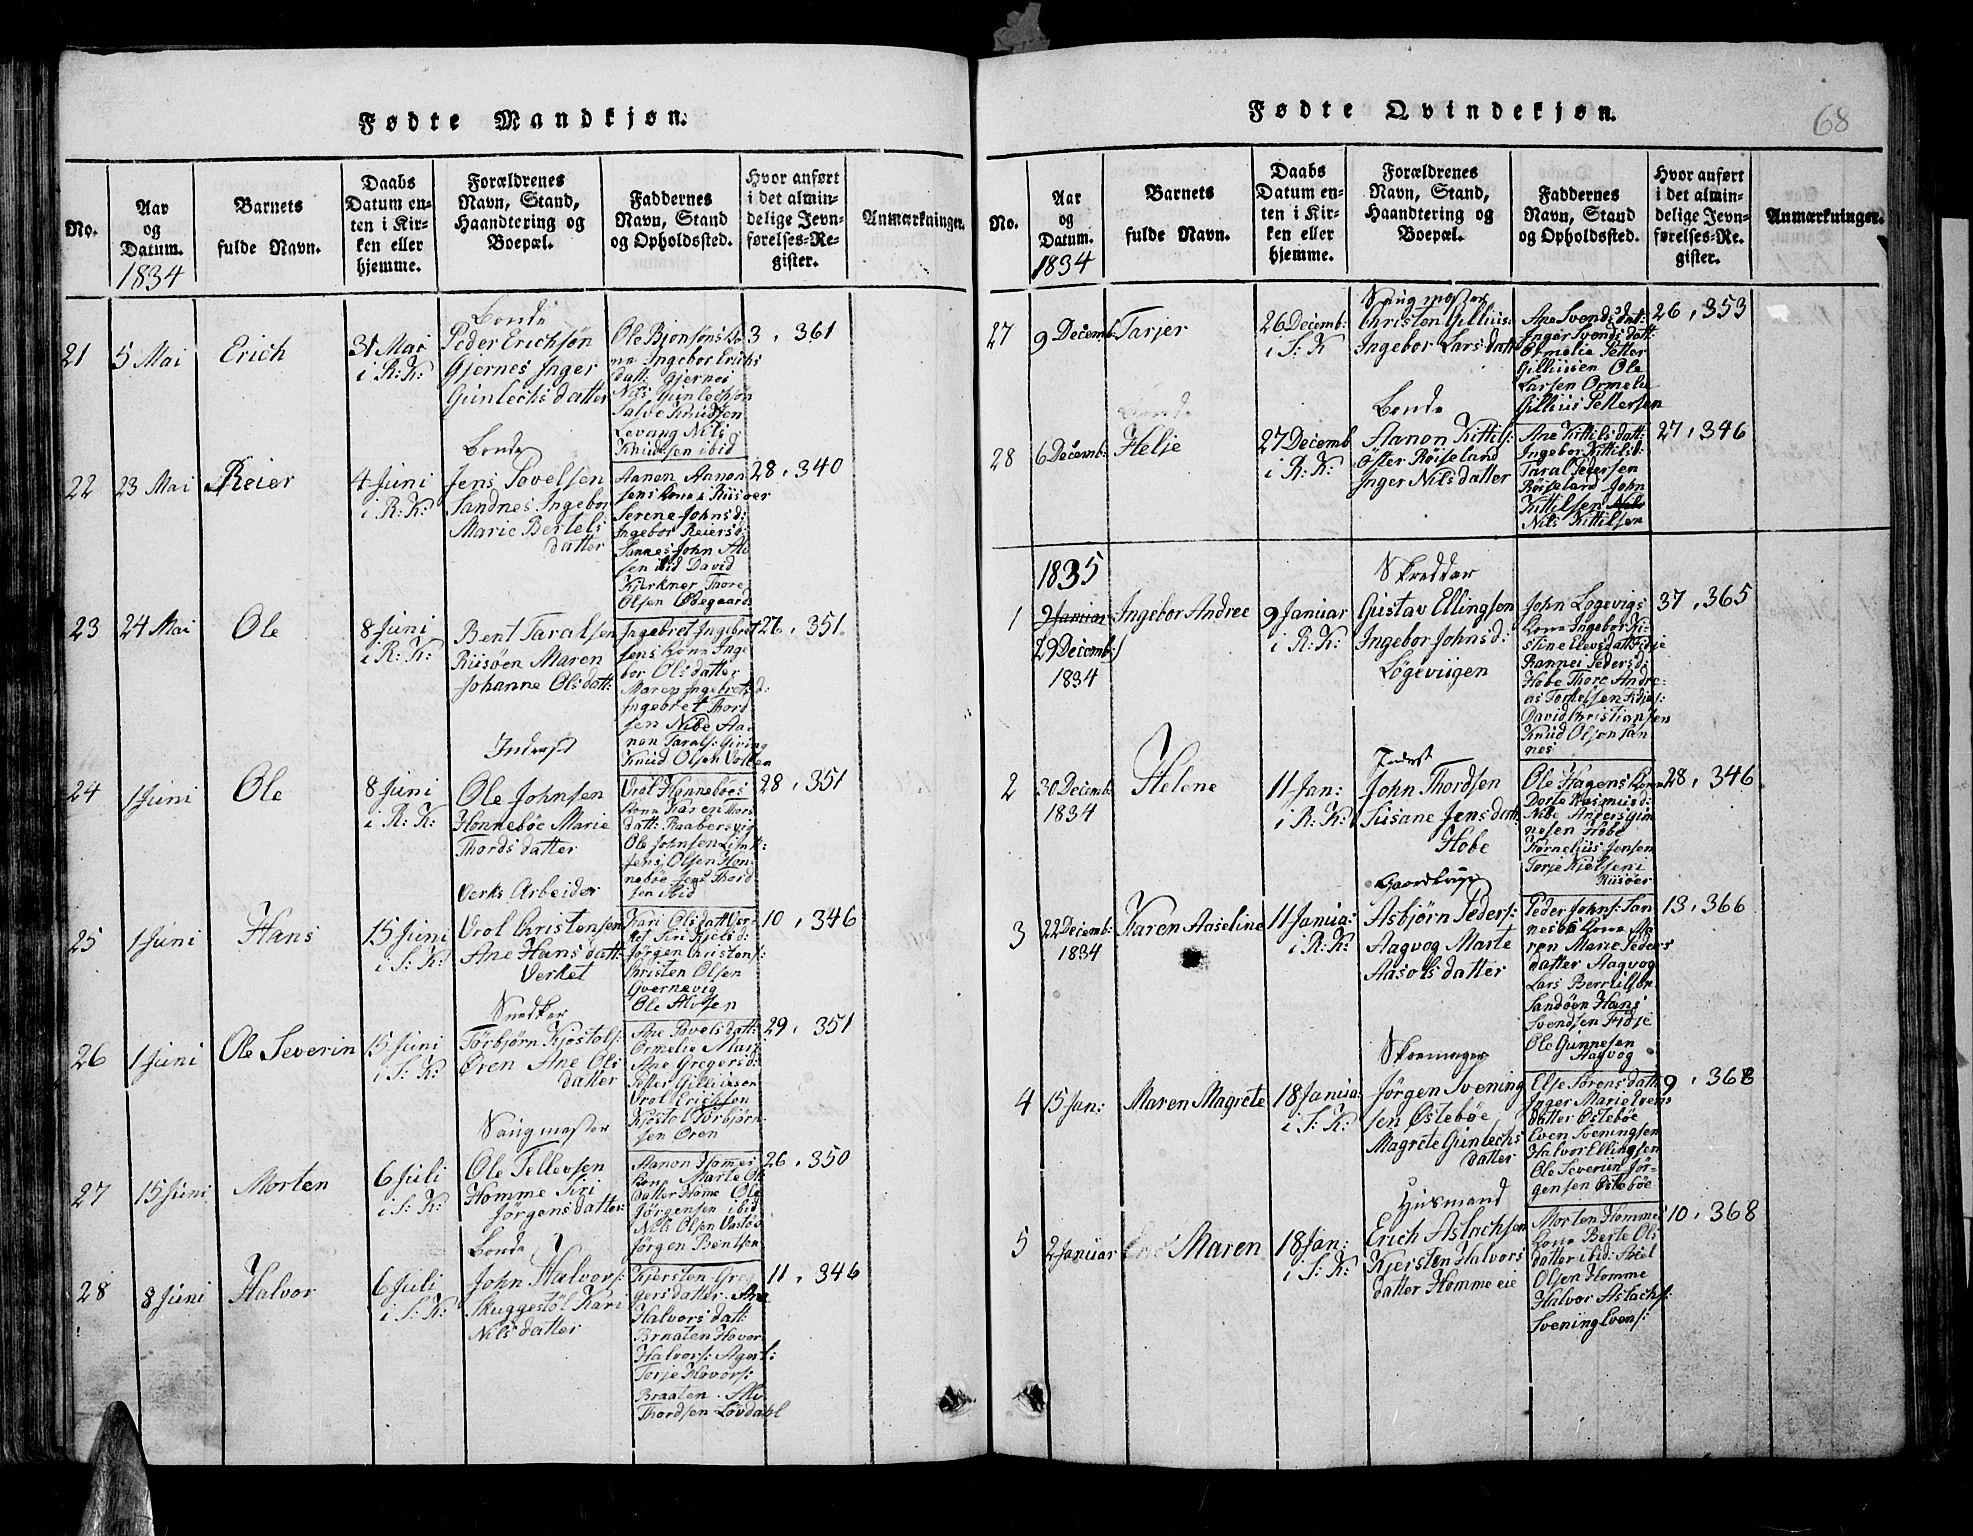 Fødte Mandkjøn.
No.
Aar
og
Datum.
1834
Barnets
fulde Navn.
Daabs
Datum en-
ten i Kir-
ken eller
hjemme.
Forældrenes
Navn, Stand,
Haandtering og
Boepæl.
Faddernes
Navn, Stand
og Opholdssted.
Hvor anført
i det almin-
delige Jevn-
førelses-Re-
gister.
Anmærkninger.
21
5 Mai
Erich
31 Mai
i R: K:
Bonde
Peder Erichsøn
Gjernes Inger
Gunlechs datter
Ole Bjonsøns Ko
na Ingebor Erichs
datt: Gjernes
Nils Gunlechsøn
Salve Knudsen
Levang Nils
Knudsen ibid
3, 361
22
23 Mai
Reier
4 Juni
i R: K:
Bonde
Jens Povelsen
Sandnes Ingebor
Marie Bertels
datter
Aanon Aanon
sens kona i Riisøer
Serene Johnsd:
Ingebor Reiersd:
Sannes John Al
sen ibid David
Kierkner Thore
Olsen Ødegaard
28, 340
23
24 Mai
Ole
8 Juni
i R: K:
Bent Taralsen
Riisøen Maren
Johanne Ols datt:
Ingebret Ingebret
sens kona Inge
bor Ols datter
Maren Ingebretsd:
Ingebret Thord
sen Nibe Aa
non Tarals: Giving
Knud Olsen Vollen
27, 351.
24
1 Juni
Ole
8 Juni
i R: K:
Inderst
Ole Johnsen
Honnebøe Marie
Thords datter
Vrol Honnebøes
kona Karen Thors
datt: Raabersvig
Ole Johnsen
Jens Olsen Hon
nebøe Jens Thord
sen ibid
28, 351
25
1 Juni
Hans
15 Juni
i S: K:
Verks Arbeider
Vrol Christensen
Ane Hans datt:
Verket
Kari Ols datt Ver-
ket Siri Kjelsd:
Jørgen Christens:
Christen Olsen
Gvernevig
Ole Alvsen
10, 346
26
1 Juni
Ole Severin
15 Juni
i S: K:
Snedker
Törbjörn Kjöstols:
Ören Ane Ols
datter
Ane Povels datt:
Ormelie Mari
Ane Gregersd:
Petter Gilliusen
Vrol Ericksen
Kjöstol Törbjörn
sen Ören
29, 351
27
15 Juni
Morten
6 Juli
i S: K:
Saugmester
Ole Tellevsen
Homme Siri
Jørgens datter:
Aanon Homes
kone Marte Ols
datter Home Ole
Jørgensen ibid
Nils Olsen Vastøe
Jørgen Bentsen
26, 350
28
8 Juni
Halvor
6 Juli
i S: K:
Bonde
John Halvors:
Skuggestöl Kari
Nils datter
Kjersten Greg
gers datter Ane
Halvors datt:
Braaten Hover
Halvors: Agerl:
Torje Hovors:
Braaten
Thordsen Lövdahl
11, 346
Fødte Qvindekjøn.
68
No.
Aar
og
Datum.
1834
Barnets
fulde Navn.
Daabs
Datum en-
ten i Kir-
ken eller
hjemme.
Forældrenes
Navn, Stand,
Haandtering og
Boepæl.
Faddernes
Navn, Stand
og Opholdssted.
Hvor anført
i det almin-
delige Jevn-
førelses-Re-
gister.
Anmærkninger.
27
9 Decemb:
Tarjer
26 Decemb:
i S: K
Saugmester
Christen Gillius:
Ingebor Lars datt:
Ane Svends dat:
Inger Svends datt:
Ormelie Petter
Gilliusen Ole
Larsen Ormelie
Gillius Pettersen
26, 353
28
6 Decemb:
Helje
27 Decemb
i R: K:
Bonde
Aanon Kittils:
Öster Röiseland
Inger Nils datter
Ane Kittils datt:
Ingebor Kittilsd:
Taral Pedersen
Röiseland John
Kittilsen Nils
Nils Kittilsen
27, 346
1835
1
9 Januar
29 Decemb:
1834
Ingebor Andree
9 Januar
i R: K:
Skredder
Gustav Ellingsen
Ingebor Johnsd:
Lögeviigen
John Løgevigs
kona Ingebor Ki-
stine Elevs datt Fidje
Rannei Pedersd:
Hobe Thore Andre-
as Torkelsen Fidje:
David Christiansen
Knud Olsen San
nes
37, 365
2
30 Decemb:
1834
Helene
11 Jan:
i R: K:
Inderst
John Thordsen
Susane Jens datt:
Hobe
Ole Hagens kona
Dorte Rasmusd:
Nibe Anders Gun
nesen Hobe
Kornelius Jensen
Torje Kielsen i
Riisøer
28, 346
3
22 Decemb:
1834
Karen Aaseline
11 Janua:
i R: K:
Gaardbruge
Asbjørn Peders:
Aagvog Marte
Aasols datter
Peder Johns: San
nes kona Ma
ren Marie Peders
datter Aagvog
Lars Berruljsøn
Sandøen Hans
Svendsen Fidje
Ole Gunnesen
Aagvog
13, 366
4
15 Jan:
Maren Magrete
18 Janua:
i S: K:
Skoemager
Jørgen Svening
sen Østebøe
Magrete Gunlechs
datter
Else Sørens datt:
Inger Marie Evens
datter Østebøe
Even Sveningsen
Halvor Ellingsen
Ole Severiin Jør-
gensen Østebøe
9, 368
5
2 Januar
Maren
18 Jan:
i S: K:
Husmand
Erich Aslachsen
Kjersten Halvors
datter Homme eie
Morten Hommes
kona Berte Ols
datter ibid:
Olsen Homme
Halvor Aslachs:
Svening Evens:
10, 368